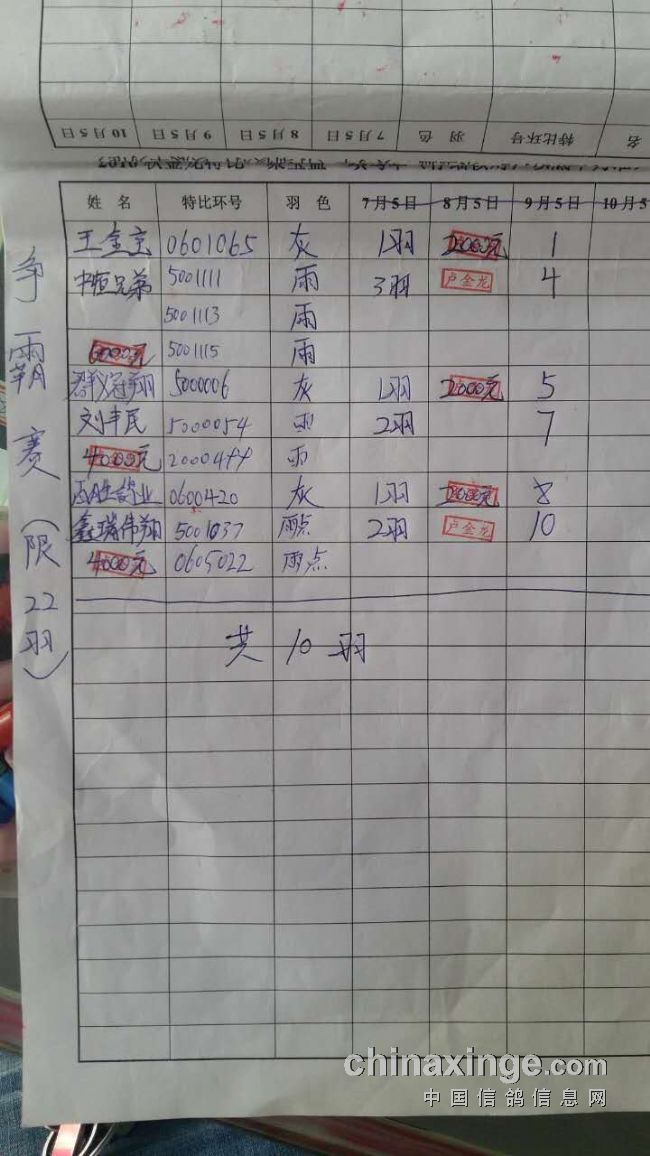 名 特比环号 羽 色 7月5日 8月5日 9月5日 10月5日
争霸赛(限22羽)
姓 名 特比环号 羽 色 7月5日 8月5日 9月5日 10月5
王金京 0601065 灰 1羽 2000元 1
中恒兄弟 5001111 雨 3羽 卢金龙 4
5001113 雨
6000元 5001115 雨
群义冠翔 5000006 灰 1羽 2000元 5
刘丰民 5000054 雨 2羽 7
4000元 2000444 雨
药业 0600420 灰 1羽 2000元 8
鑫瑞伟翔 5001037 雨点 2羽 卢金龙 10
4000元 0605022 雨点
共10羽
chinaxinge.com
中国信鸽信息网